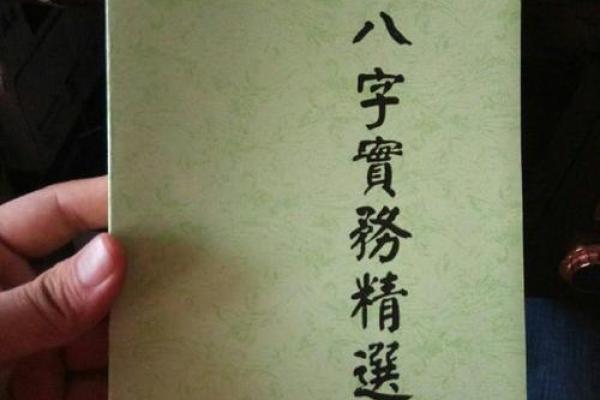 八字實務精選